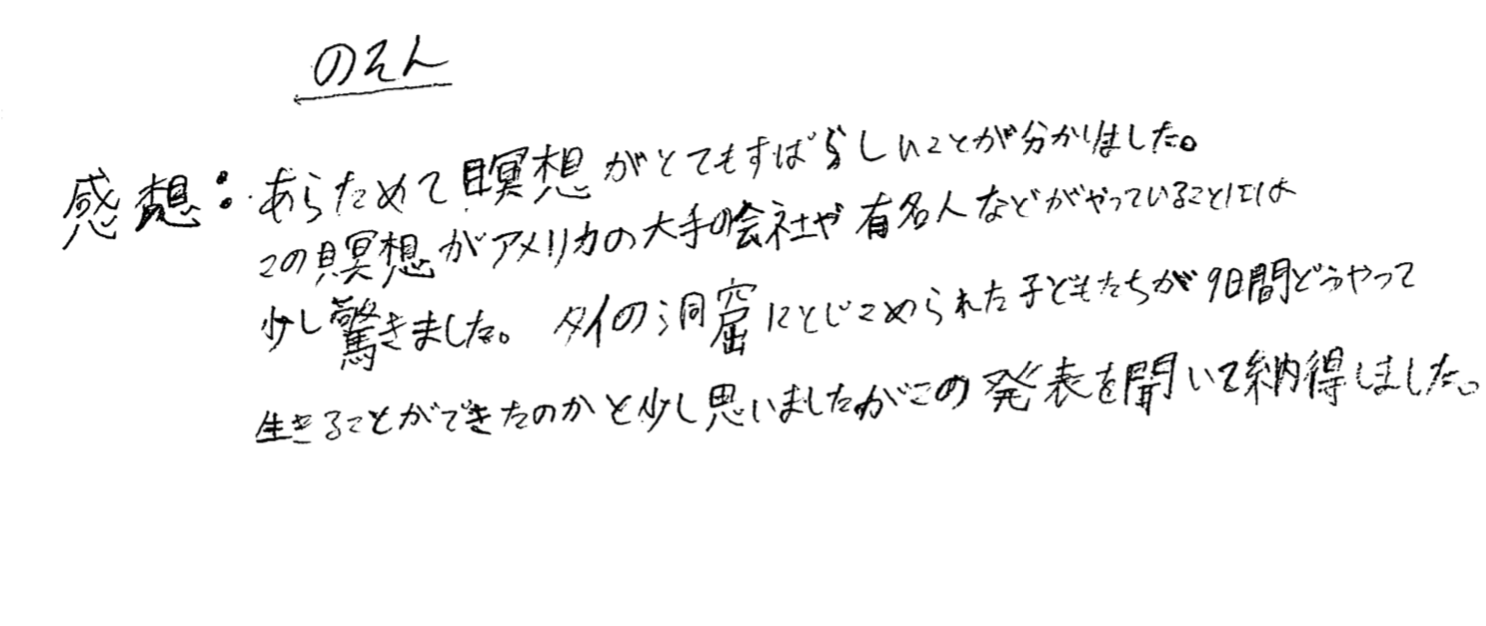 のぞん
感想：あらためて瞑想がとてもすばらしいことが分かりました。
この瞑想がアメリカの大手の会社や有名人などがやっていることには
少し驚きました。タイの洞窟にとじこめられた子どもたちが9日間どうやって
生きることができたのかと少し思いましたがこの発表を聞いて納得しました。